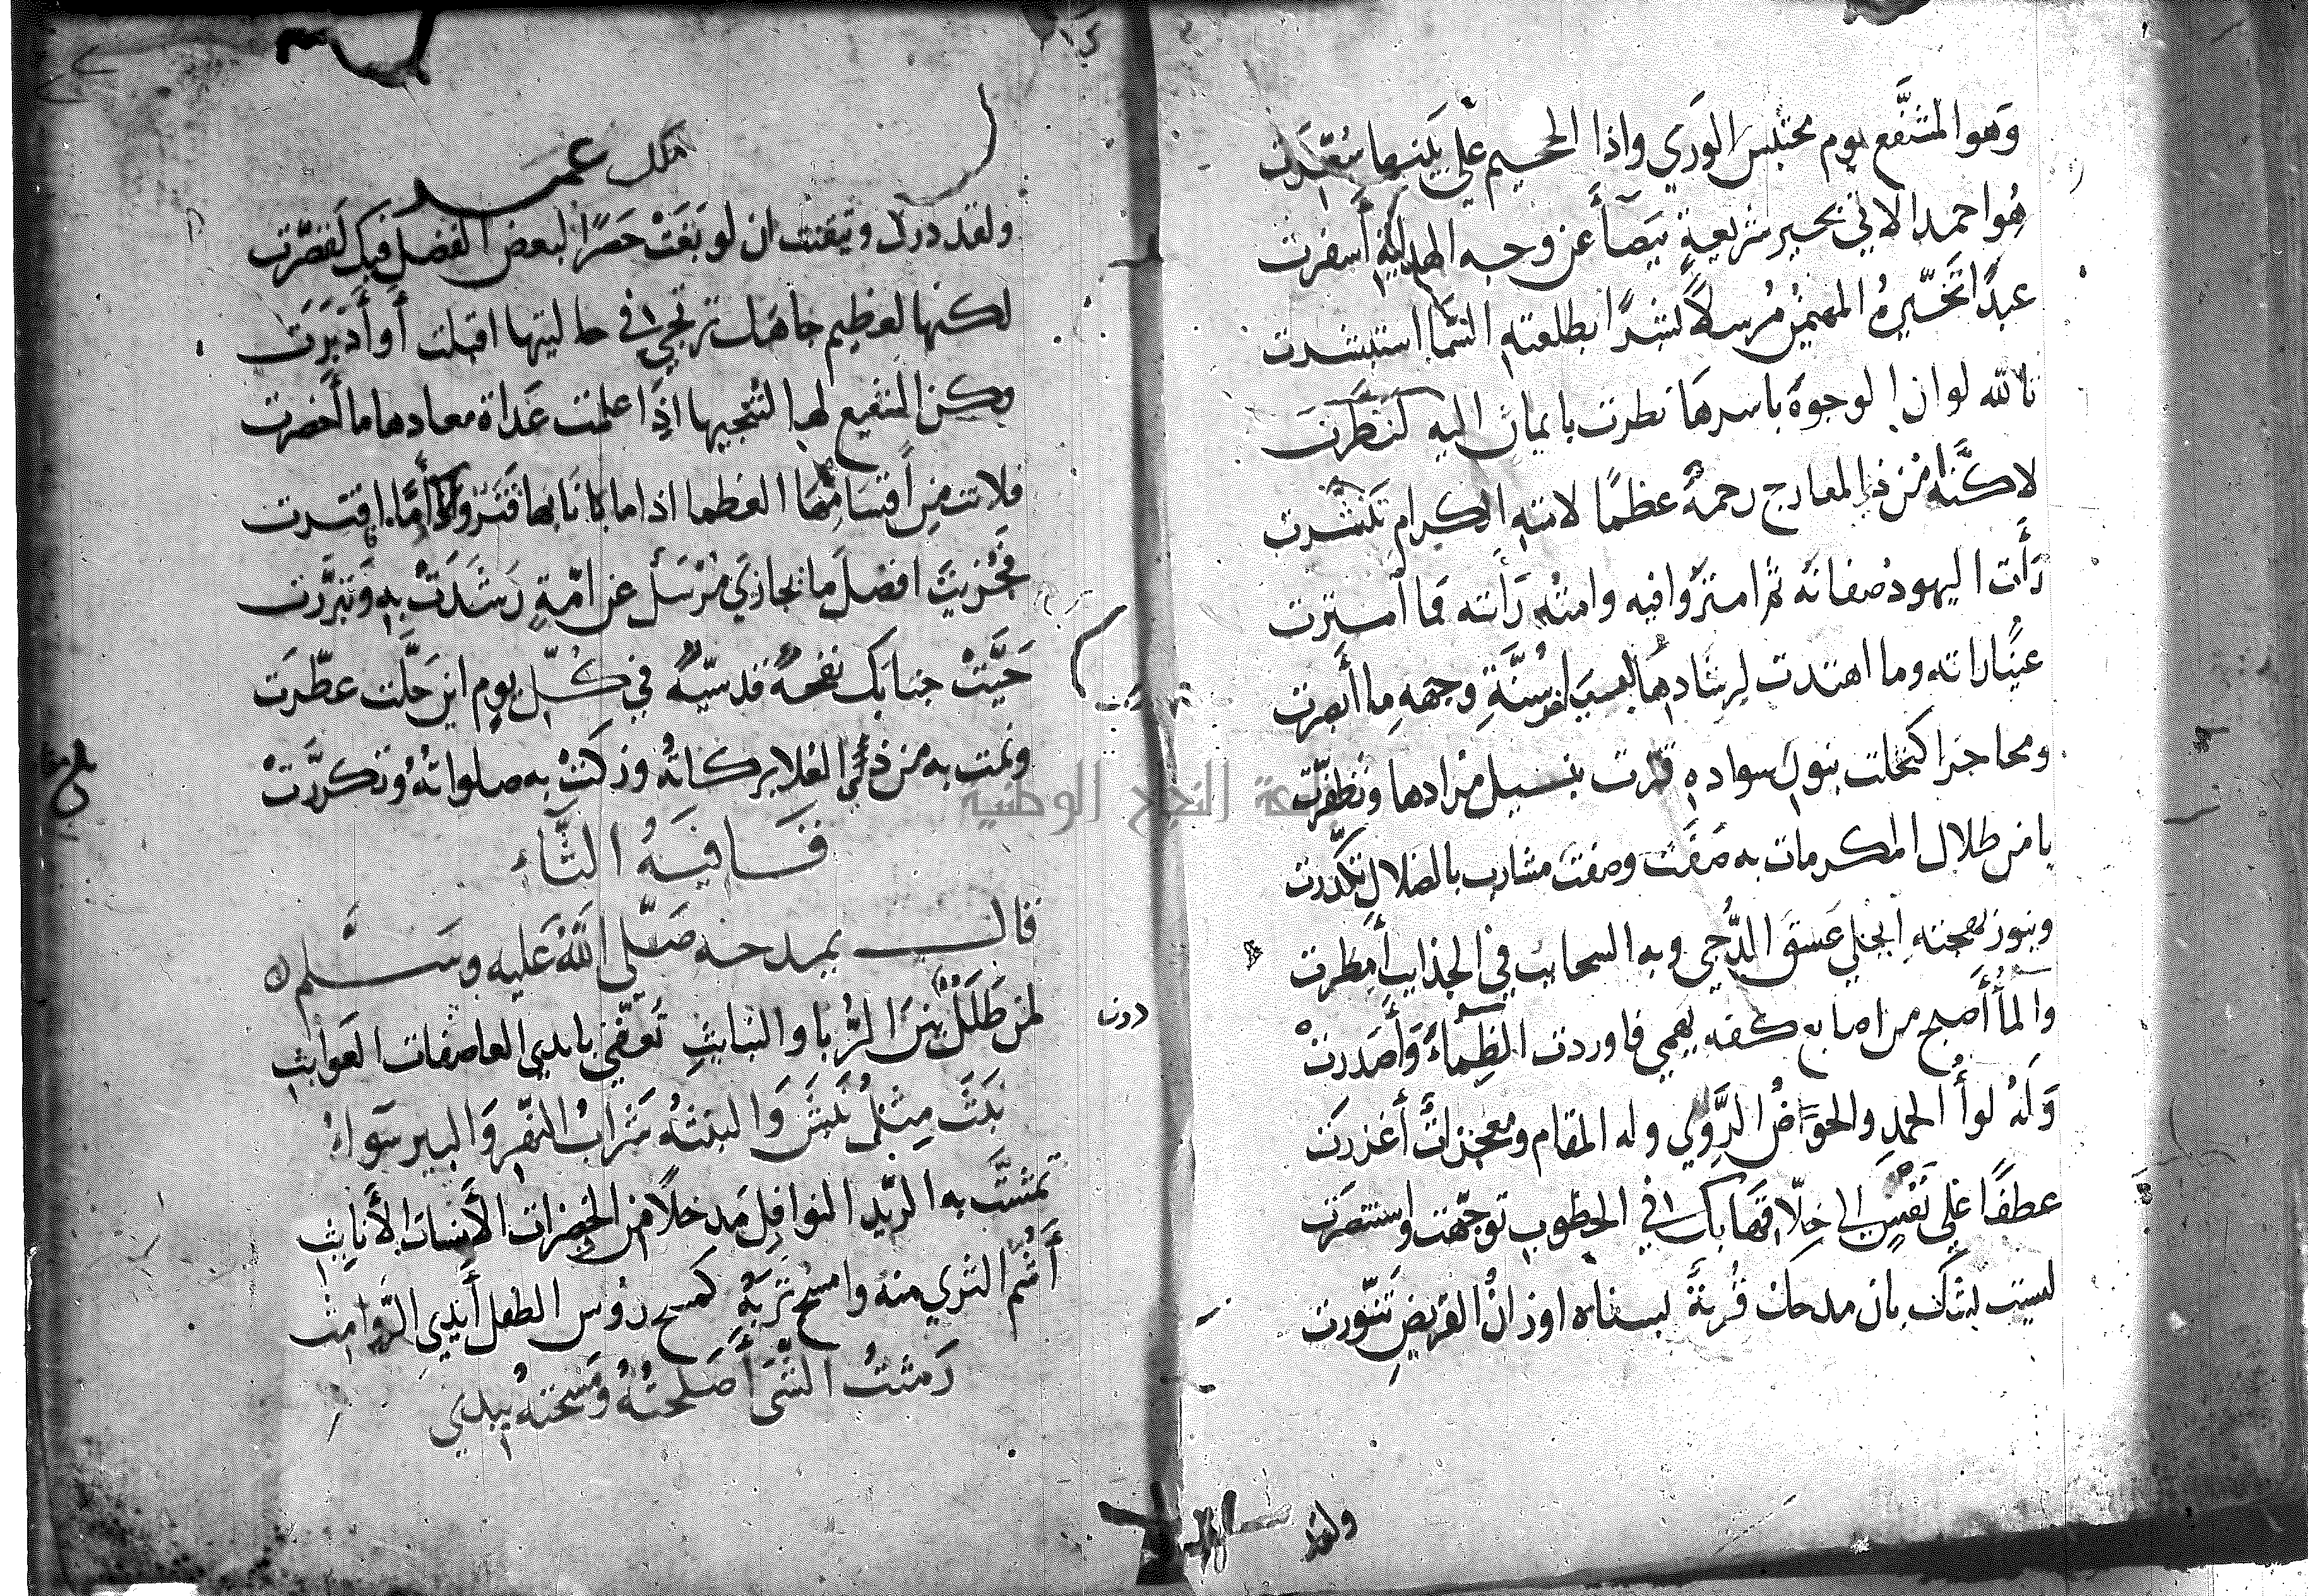 وَهو المشفَّع يوم محتبس الوَرَي واذا الجحيم علي
هُوا حمد الاتي بخير شريعةٍ بيَضآءَ عن وجه الهداية أَسفرت
عبدًا تَخَيّرهُ المهيمنُ مُرسلاً لبشرًا بطلعته السما استبشرت
تالله لوان الوجوهَ باسرهَا نظرت بايمان اليه لنضرت
لاكنَّها من ذي المعارج رحمةٌ عظمًا لامته الكرام تنشرت
رَأَت اليهود صفاته ثم امترَوا فيه وامته رَأته فما امترت
وما اهتدت لرشادها من سُنَّةِ وجههِ ما أبصرت
ومحاجرا كتحلت بنور سواده قرت بنيل مرادها وتظفرت
يا من ظلال المكرمات به ضفت وصفت مشارب بالضلال تكدّرت
وبنور بهجته انجلي غسق الدُّجي وبه السحايب في الجدايب أَمطرت
والمآأَصبح من اصابع كفه يهمي فاوردت الظِمآءَ وَأَصدرتْ
وَلهُ لوأُ الحمدِ والحوَاضُ الرَّوِي وله المقام ومعجزاتٌ أغزرت
عطفًا علي نَفسٍ الي خلّاقها بك في الخطوب توجّهت واستنصرت
ليست بشك بان مدحك قُربةٌ لسناه اوزانُ القريضِ تنوّرت
ولقد
ملك عمر
ولقد درت وتيقنت ان لو بَغَتْ حَصرًا لبعض الفضل فيك لَقصّرت
لكنها لعظيم جاهك ترتجي في حاليتها اقبلت أَوأَدبَرَت
وكن الشفيع لها لتنجيها اذَا علمت غَداة معادها ما أَحضرت
فلانت من العظما اذا ما
فَجُزيتَ افضلَ ما يجازي مُرسَلٌ عن امّةٍ رَشَدَتْ بهِ وَتبرّرت
حَيَّتْ جنابَك نفحةٌ قدسيّةٌ في كُلّ يومٍ اين حَلَّت عطّرت
ونمت به من ذي العُلا بركاتُهُ وزكَتْ به صلواتهُ وتكرَّرَتْ
قَافِيَةُ الثَّاءِ
قال يمدحه صَلّى اللهُ عَليه وسَلم
لمن طَلَلٌ بين الرُبا والنبايثِ تَعَفّي بايدي العاصفات العَوابث
نَبَثَ مِثلُ نَبَشَ وَالنبثةُ تُرابُ النهر وَالبير سَواءٌ
تمشّت به الرّبد النوافل مدخلاً من الخفرات الأنسات الأنايث
أَشُمّ الثري منه وامسح تُربَهُ كمسح رؤس الطفل أَيدي الرّوامث
رَمثتُ الشَّيَ أَصَلحتُهُ وَمَسحتهُ بيدي